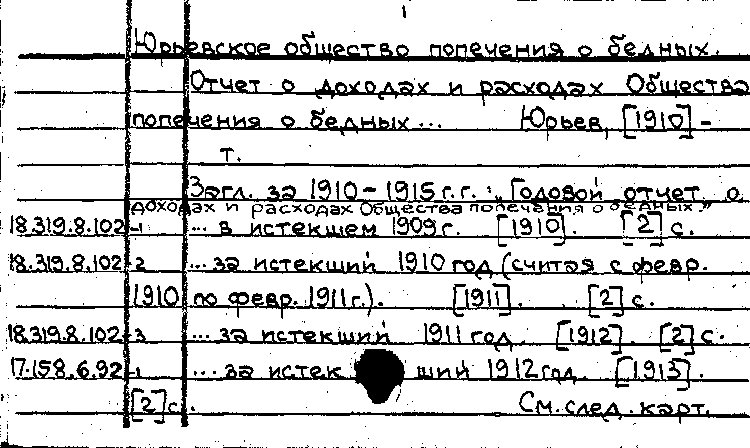 Юрьевское общество попечения о бедных.
Отчет о доходах и расходах Общества
попечения о бедных... Юрьев, [1910] -
т.
Загл. за 1910-1915 г.г.: „Годовой отчет о
доходах и расходах Общества попечения о бедных."
18.319.8.102-1 ... в истекшем 1909 г. [1910]. [2] с.
18.319.8.102-2 ... за истекший 1910 год (считая с февр.
1910 по февр. 1911 г.). [1911]. [2] с.
18.319.8.102-3 ... за истекший 1911 год. [1912]. [2] с.
17.158.6.92-1 ... за истекший 1912 год. [1913].
[2] с. См. след. карт.